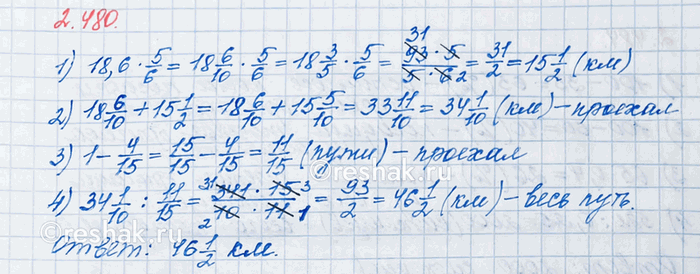 2.480.
1) 18,6 · 5/6 = 18 6/10 · 5/6 = 18 3/5 · 5/6 = (93 · 5)/(5 · 6) 31 2 = 31/2 = 15 1/2 (км)
2) 18 6/10 + 15 1/2 = 18 6/10 + 15 5/10 = 33 11/10 = 34 1/10 (км) – проехал
3) 1 - 4/15 = 15/15 - 4/15 = 11/15 (пути) – проехал
4) 34 1/10 : 11/15 = (341 · 15)/(10 · 11) 31 3 2 1 = 93/2 = 46 1/2 (км) – весь путь.
Ответ: 46 1/2 км.
©reshak.ru
©reshak.ru